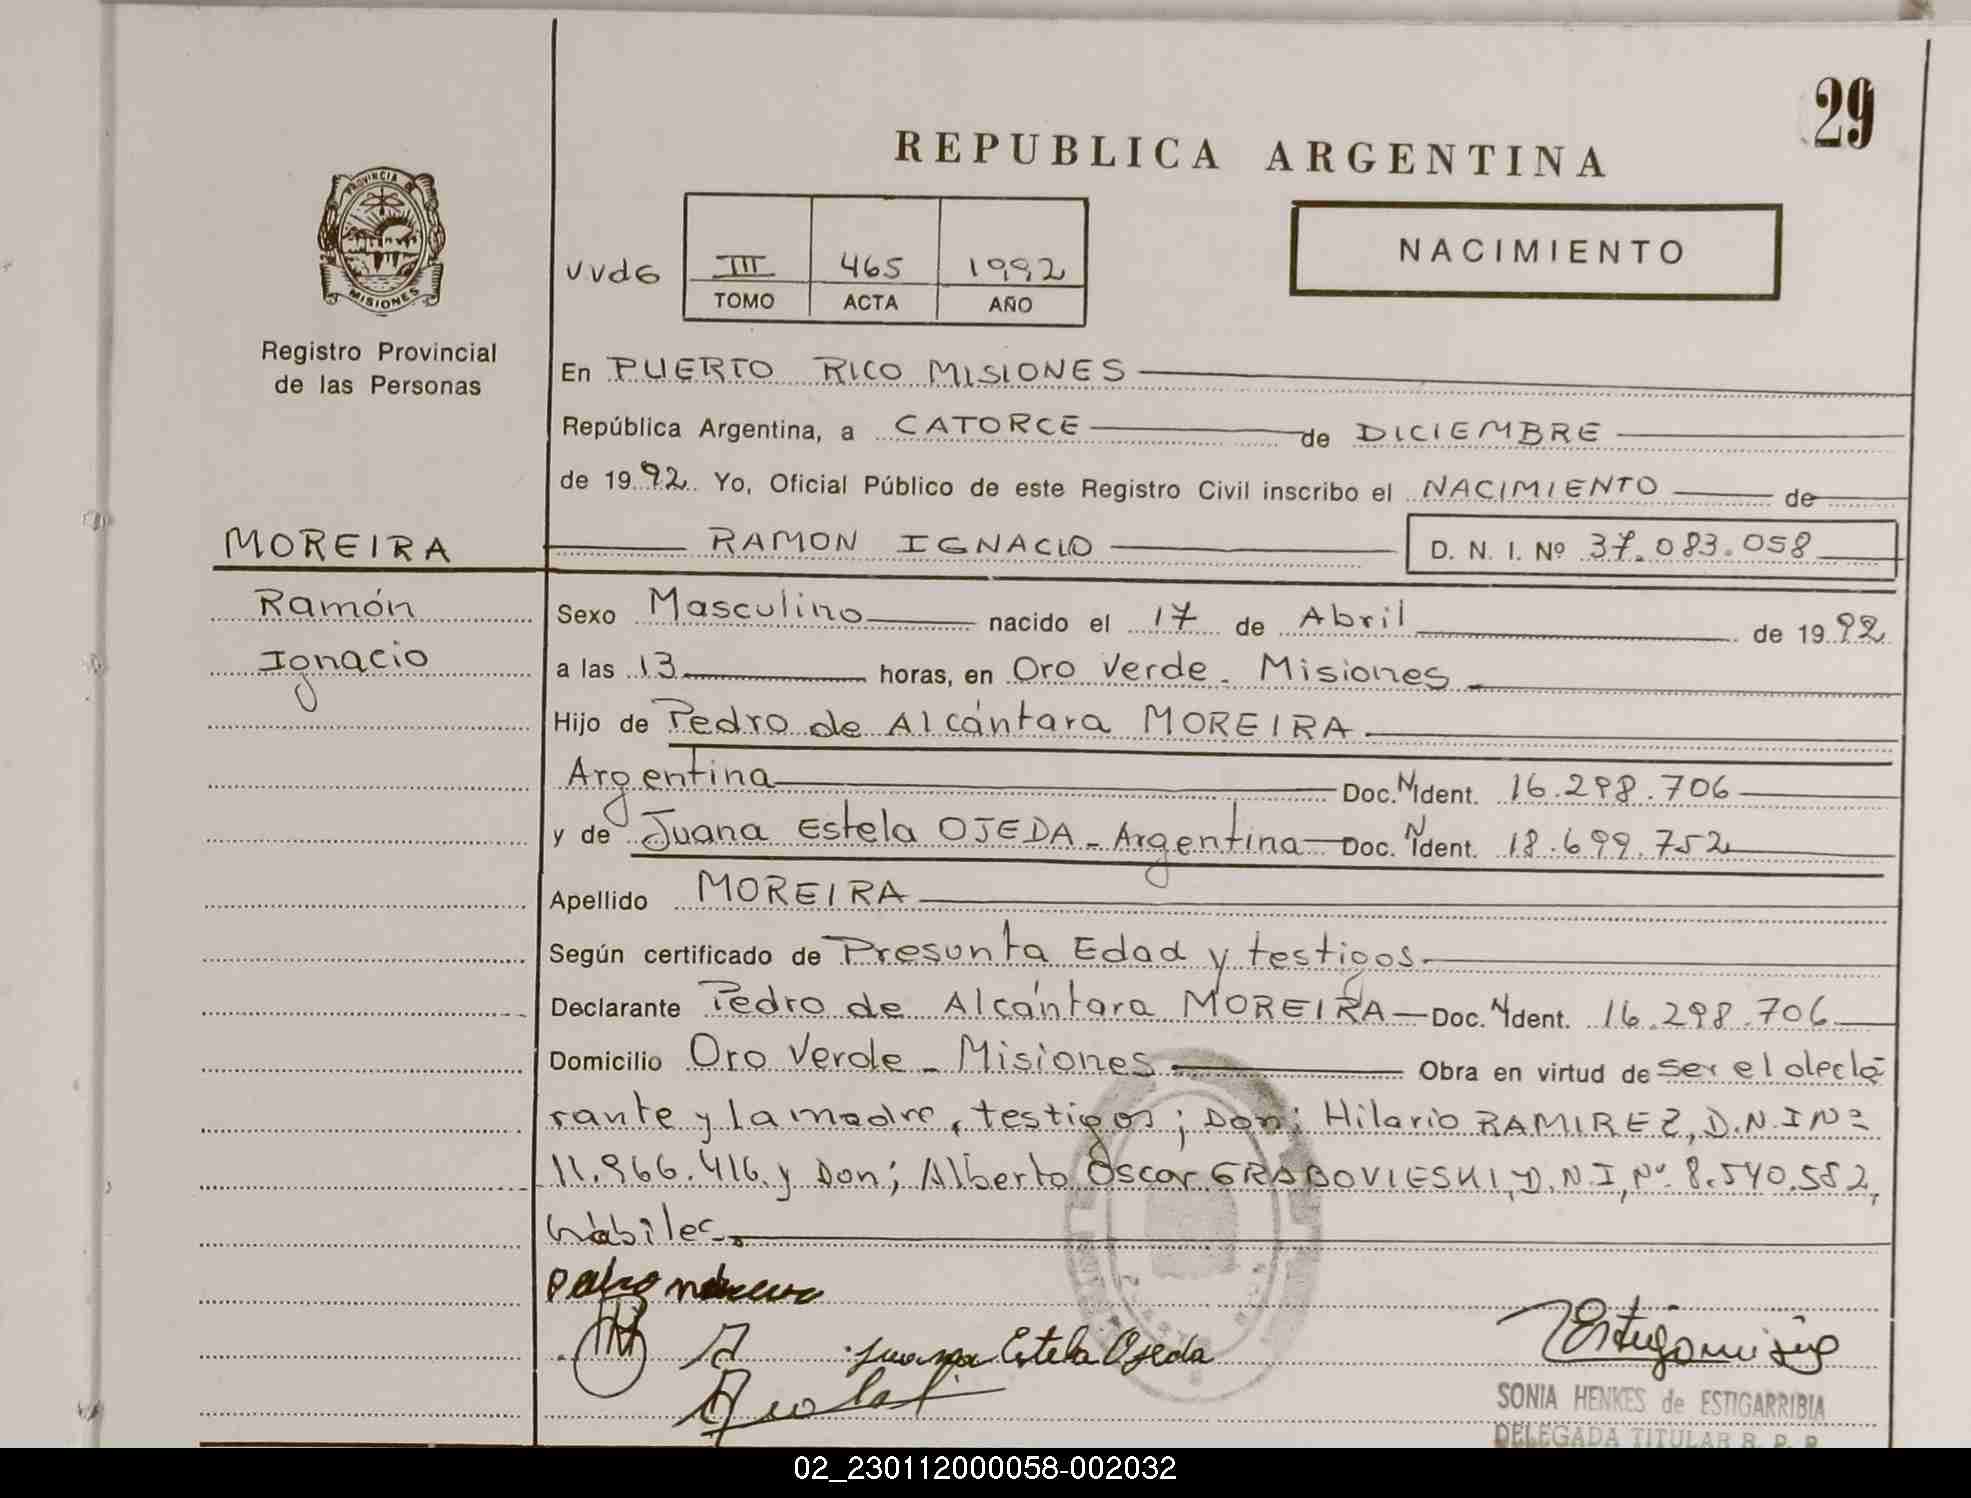 29
REPUBLICA ARGENTINA
PROVINCIA DE
MISIONES
Registro Provincial
de las Personas
VVdG
III 465 1992
TOMO ACTA AÑO
NACIMIENTO
En PUERTO RICO MISIONES
República Argentina, a CATORCE de DICIEMBRE
de 1992. Yo, Oficial Público de este Registro Civil inscribo el NACIMIENTO de
MOREIRA RAMON IGNACIO D. N. I. Nº 37.083.058
Ramón
Ignacio
Sexo Masculino nacido el 17 de Abril de 1992
a las 13 horas, en Oro Verde - Misiones
Hijo de Pedro de Alcántara MOREIRA
Argentina Doc. N Ident. 16.298.706
y de Juana Estela OJEDA - Argentina Doc. N Ident. 18.699.752
Apellido MOREIRA
Según certificado de Presunta Edad y testigos
Declarante Pedro de Alcántara MOREIRA Doc. N Ident. 16.298.706
Domicilio Oro Verde - Misiones Obra en virtud de ser el decla
rante y la madre, testigos; Don; Hilario RAMIREZ, D.N.I Nº
11.966.416 y Don; Alberto Oscar GRABOVIESKI, D.N.I, Nº 8.540.582,
hábiles.
Juana Estela Ojeda
SONIA HENKES de ESTIGARRIBIA
DELEGADA TITULAR R. P. P.
02_230112000058-002032